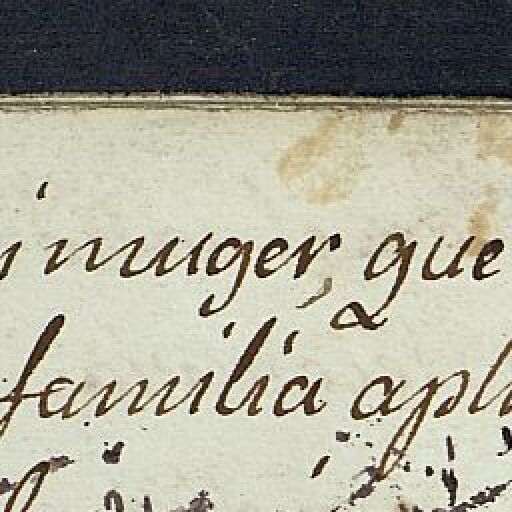 muger, que
familia apl